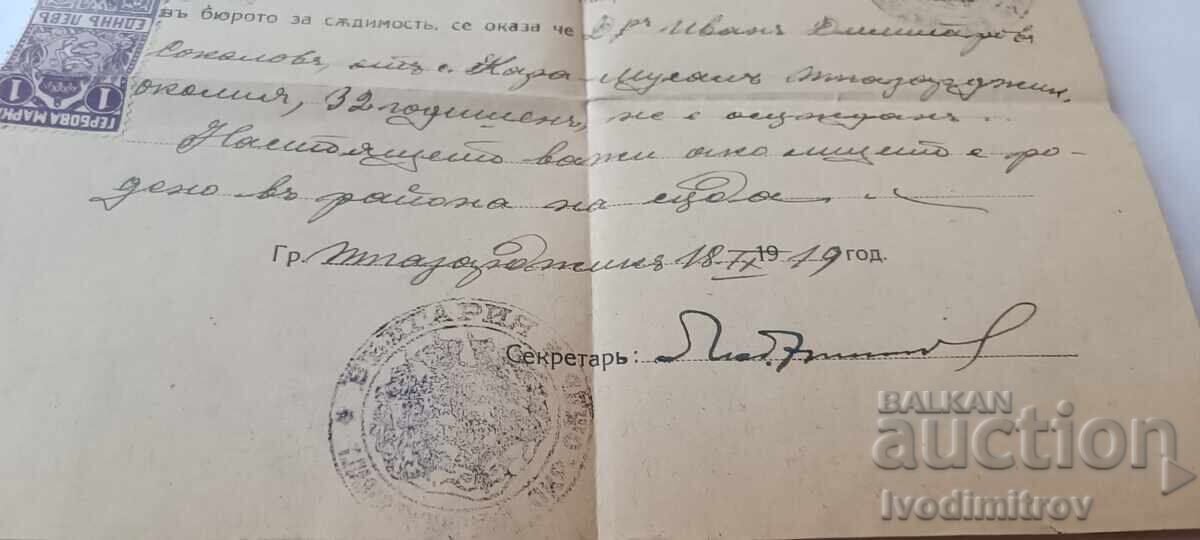 въ бюрото за сѫдимость, се оказа че Др ъ Иванъ Димитровъ
Соколовъ, отъ с. Кара-Мусалъ Т. Пазарджик.
околия, 32 годишенъ, не е осѫжданъ.
Настоящето важи ако лицето е ро-
дено въ района на сѫда.
Гр. Т. Пазарджикъ 18 IX 1919 год.
Секретарь:
БЪЛГАРИЯ
ГЕРБОВА МАРКА
ЕДИНЪ ЛЕВЪ
1 1
BALKAN
auction
Ivodimitrov